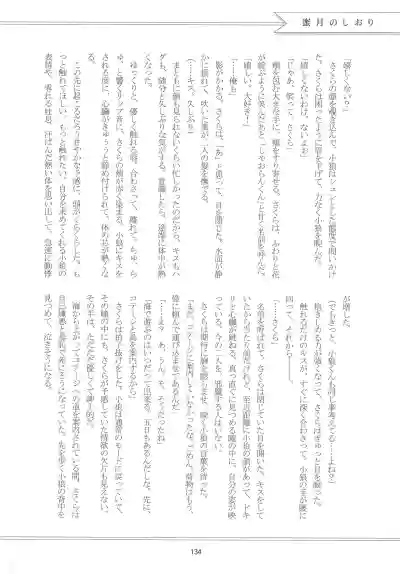 蜜月のしおり
「嬉しくない?」
さくらの顔を覗き込んで、小狼はシュンとした態度で問いかけ
た。さくらは困ったように眉を下げて、力なく小狼を睨んだ。
「嬉しくないわけ、ないよぉ」
「じゃあ、笑って。さくら」
頬を包む大きな手に、頬をすり寄せる。さくらは、ふわりと花
が綻ぶように笑んだあと「しゃおらんくん」と甘く名前を呼んだ。
「嬉しい。大好き!」
「……俺も」
影がかかる。さくらは、「あ」と思って、目を閉じた。水面が静
かに揺れて、吹いた風が二人の髪を撫でる。
(……キス。久しぶり)
まともに顔も見られないくらい忙しかったのだから、キスもハ
グも、随分と久しぶりな気がする。意識したら、途端に体中が熱
くなった。
ゆっくりと、優しく触れる唇。合わさって、離れて。ちゅ、ち
ゅ、と響くリップ音に、さくらの頬が赤く染まる。小狼にキスを
される度に、心臓がきゅぅぅと締め付けられて、体の芯が熱くな
る。
この先に起こるだろう甘やかな予感に、頭がくらくらした。も
っと触れてほしい、もっと触れたい。自分を求めてくれる小狼の
表情や、零れる吐息、汗ばんだ熱い体を思い出して。急速に動悸
が増した。
(でもきっと、小狼くんも同じ事考えてる……よね?)
抱きしめる力が強くなって、さくらはぎゅっと目を瞑った。
触れるだけのキスが、すぐに深く合わさって。小狼の手が腰に
回って、それから——。
「……さくら」
名前を呼ばれて、さくらは閉じていた目を開いた。キスをして
いたから当たり前だけれど、至近距離に小狼の顔があって、ドキ
リと心臓が跳ねる。真っ直ぐに見つめる瞳の中に、自分の姿が映
っている。今の二人を、邪魔する人はいない。
さくらは期待に胸を膨らませ、呟く小狼の言葉を待った。
「まだ、コテージに案内していなかったな。ごめん。荷物はもう、
に頼んで運び込ませてあるんだ」
「……え? あ、うん。そ、そうだったね」
「海で遊ぶのはいつだって出来る。五日もあるんだしな。先に、
コテージと島を案内するから」
さくらは拍子抜けをした。小狼は通常のモードに戻っていて、
その瞳の中にも、さくらが予感していた情欲の欠片も見えない。
その手は、ただただ優しくて紳士的だ。
海から上がってコテージへの道を案内されている間、さくらは
自己嫌悪と羞恥で死にそうになっていた。先を歩く小狼の背中を
見つめて、泣きそうになる。
134